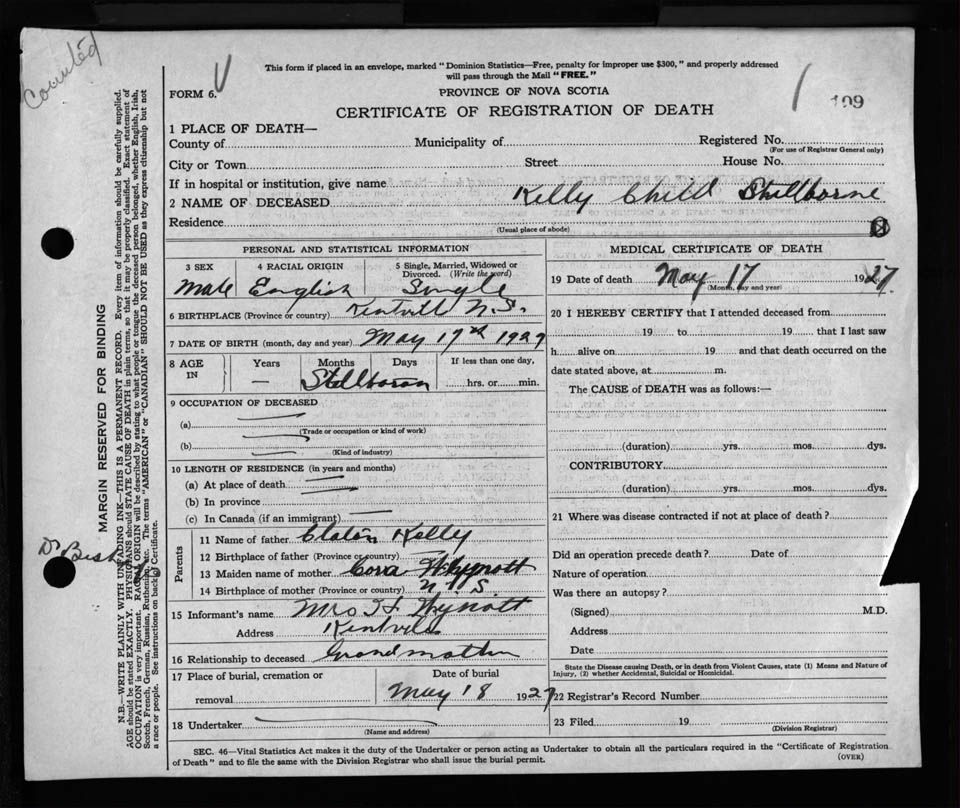 Counted
This form if placed in an envelope, marked "Dominion Statistics—Free, penalty for improper use $300," and properly addressed
will pass through the Mail "FREE."
FORM 6.
PROVINCE OF NOVA SCOTIA
109
CERTIFICATE OF REGISTRATION OF DEATH
1 PLACE OF DEATH—
County of Municipality of Registered No.
(For use of Registrar General only)
City or Town Street House No.
If in hospital or institution, give name
2 NAME OF DECEASED Kelly Child Stillborne
Residence
(Usual place of abode)
PERSONAL AND STATISTICAL INFORMATION
3 SEX 4 RACIAL ORIGIN 5 Single, Married, Widowed or
Divorced. (Write the word)
Male English Single
6 BIRTHPLACE (Province or country) Kentville N.S.
7 DATE OF BIRTH (month, day and year) May 17th 1927
8 AGE IN Years Months Days If less than one day,
— Stillborn hrs. or min.
9 OCCUPATION OF DECEASED
(a)
(Trade or occupation or kind of work)
(b)
(Kind of industry)
10 LENGTH OF RESIDENCE (in years and months)
(a) At place of death
(b) In province
(c) In Canada (if an immigrant)
Parents
11 Name of father Kelly
12 Birthplace of father (Province or country)
13 Maiden name of mother Cora Whynott
14 Birthplace of mother (Province or country) N.S.
15 Informant's name Mrs H Wynott
Address Kentville
16 Relationship to deceased Grandmother
17 Place of burial, cremation or Date of burial
removal May 18 1927
18 Undertaker
(Name and address)
MEDICAL CERTIFICATE OF DEATH
19 Date of death May 17 1927.
(Month, day and year)
20 I HEREBY CERTIFY that I attended deceased from
19 to 19 that I last saw
h alive on 19 and that death occurred on the
date stated above, at m.
The CAUSE of DEATH was as follows:—
(duration) yrs. mos. dys.
CONTRIBUTORY
(duration) yrs. mos. dys.
21 Where was disease contracted if not at place of death?
Did an operation precede death? Date of
Nature of operation
Was there an autopsy?
(Signed) M.D.
Address
Date
State the Disease causing Death, or in death from Violent Causes, state (1) Means and Nature of
Injury, (2) whether Accidental, Suicidal or Homicidal.
22 Registrar's Record Number
23 Filed 19
(Division Registrar)
SEC. 46—Vital Statistics Act makes it the duty of the Undertaker or person acting as Undertaker to obtain all the particulars required in the "Certificate of Registration
of Death" and to file the same with the Division Registrar who shall issue the burial permit.
(OVER)
MARGIN RESERVED FOR BINDING
N.B.—WRITE PLAINLY WITH UNFADING INK—THIS IS A PERMANENT RECORD. Every item of information should be carefully supplied.
AGE should be stated EXACTLY. PHYSICIANS should STATE CAUSE OF DEATH in plain terms, so that it may be properly classified. Exact statement of
OCCUPATION is very important. RACIAL ORIGIN will be described by stating to what people or tongue the deceased person belonged, whether English, Irish,
Scotch, French, German, Russian, Ruthenian, etc. The terms "AMERICAN" or "CANADIAN" SHOULD NOT BE USED as they express citizenship but not
a race or people. See instructions on back of Certificate.
Dr